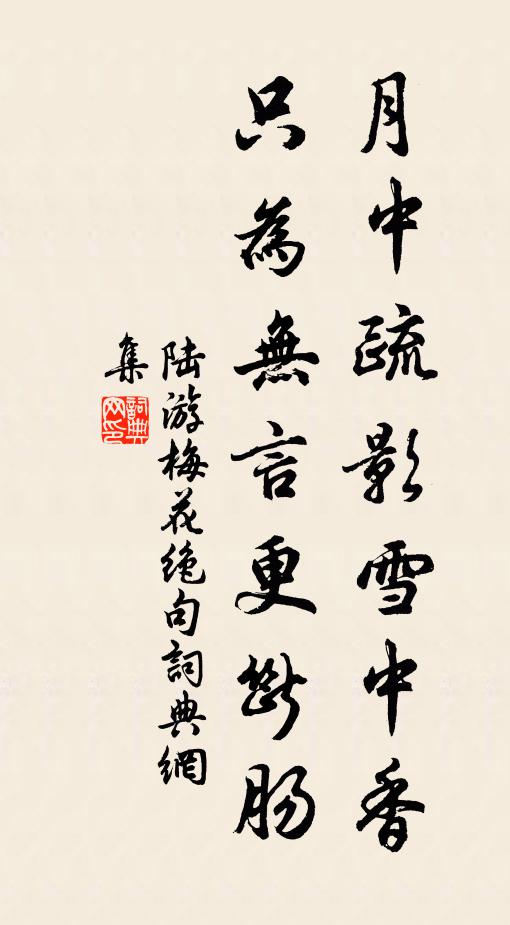 月中疏影雪中香
只為無言更斷肠
陆游梅花绝句詞典網
集
詞典网印